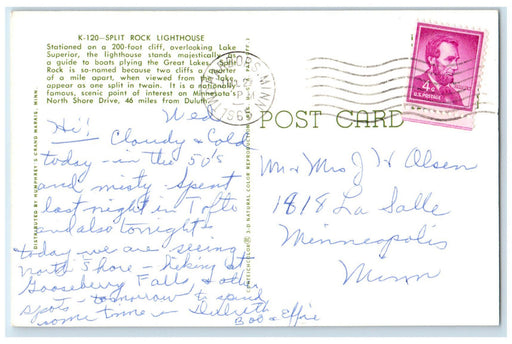 K-120—SPLIT ROCK LIGHTHOUSE
Stationed on a 200-foot cliff, overlooking Lake
Superior, the lighthouse stands majestically as
a guide to boats plying the Great Lakes. Split
Rock is so-named because two cliffs a quarter
of a mile apart, when viewed from the lake
appear as one split in twain. It is a nationally-
famous, scenic point of interest on Minnesota's
North Shore Drive, 46 miles from Duluth.
DISTRIBUTED BY HUMPHREY'S GRAND MARAIS, MINN.
MINN
4¢
U.S. POSTAGE
POST CARD
Wed
Hi!
Cloudy & Cold
today - in the 50's
and misty - spent
last night in Tofte
and also tonight -
today we are seeing
North Shore - hiking at
Gooseberry Falls, & other
spots - tomorrow to spend
some time in Duluth
Bob & Effie
Mr & Mrs J W Olsen
1818 La Salle
Minneapolis
Minn